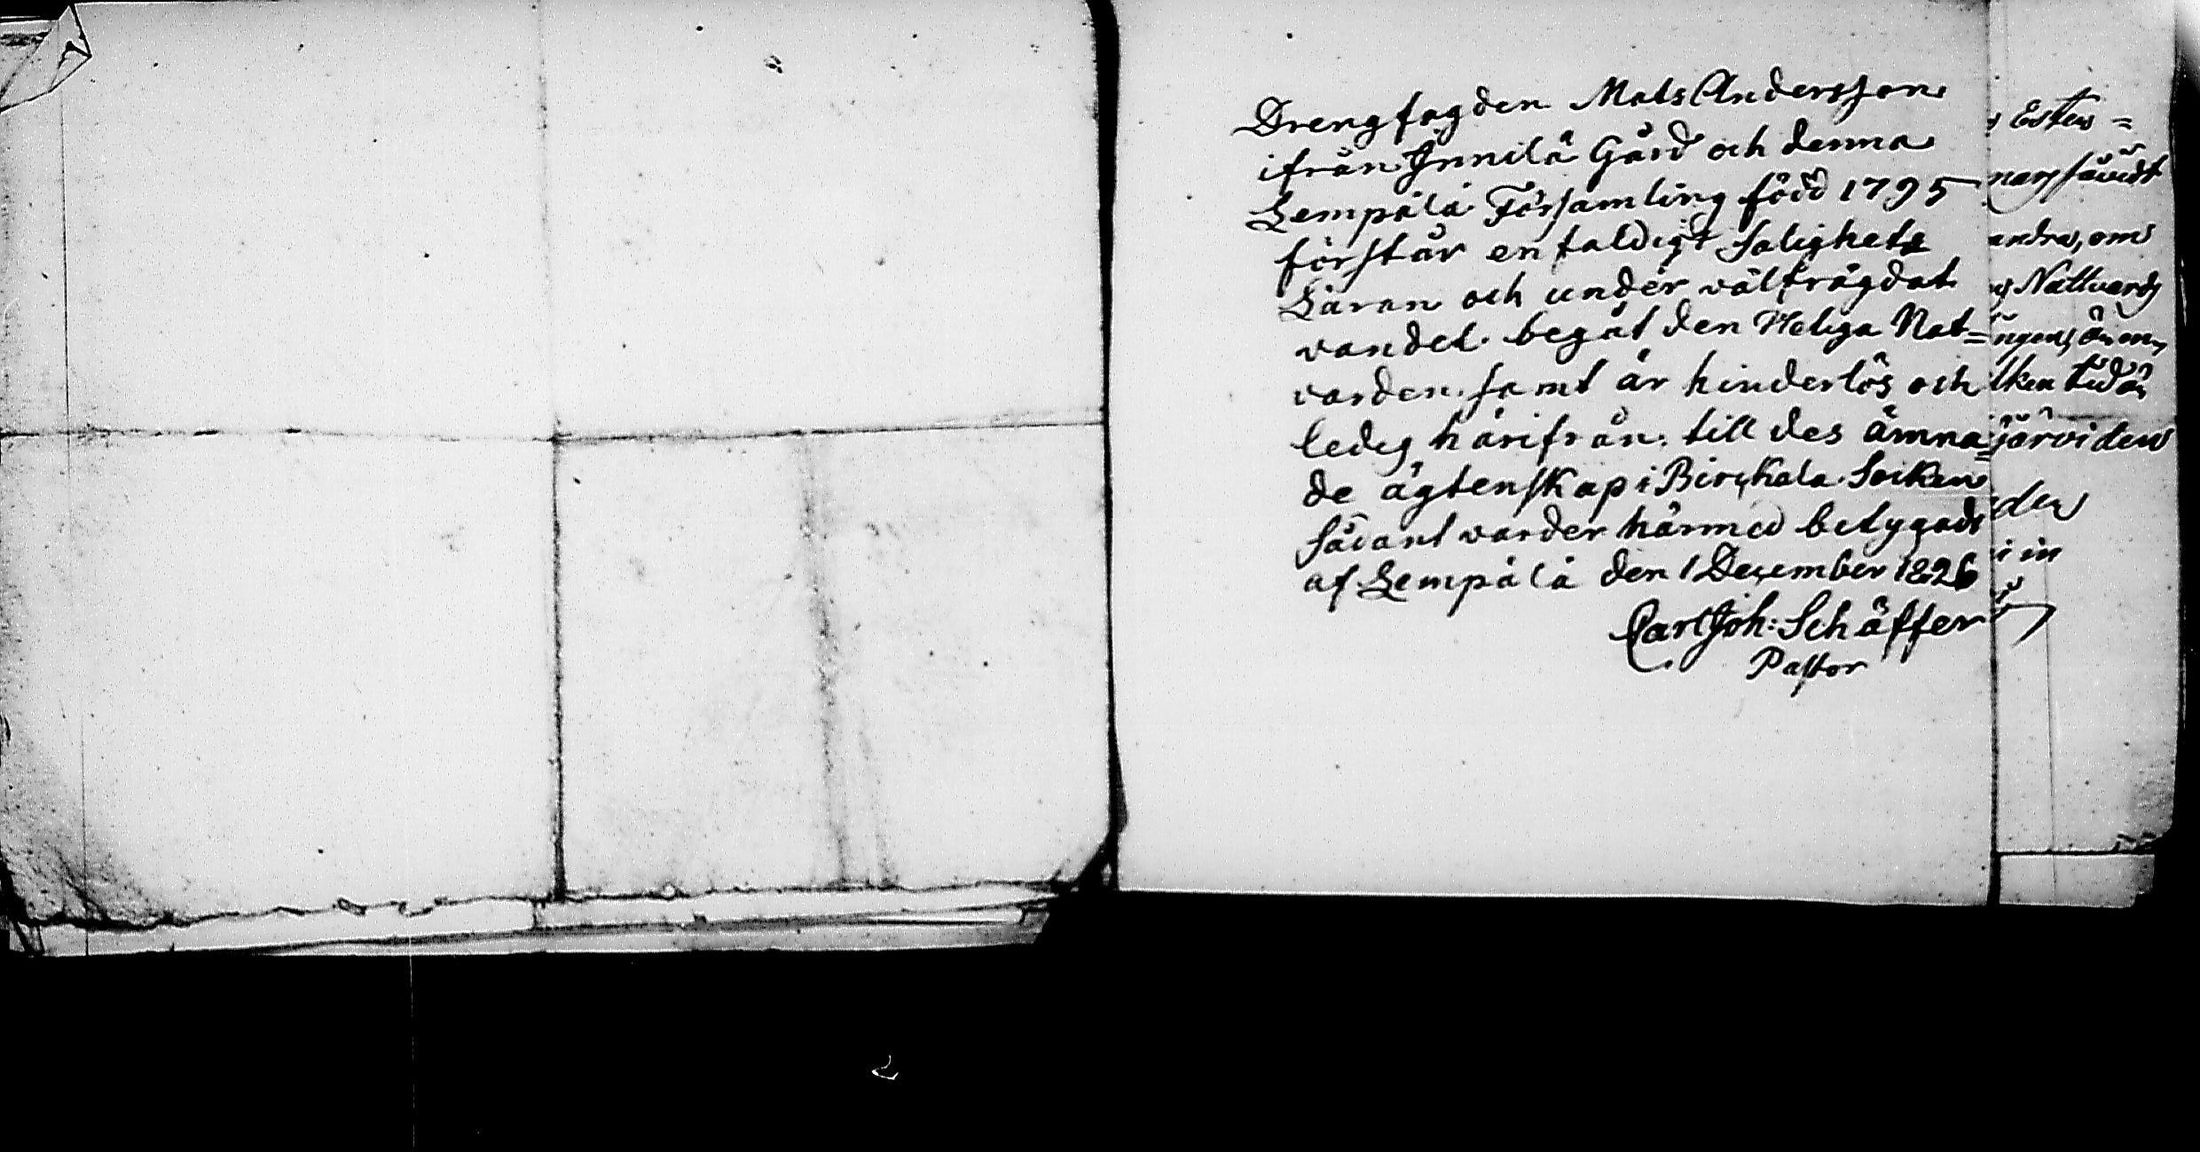 Drengfogden Mats Andersson
ifrån Innilä Gård och denna
Lempälä Församling född 1795
förstår enfaldigt Salighets
Läran och under välfrägdat
vandel begåt den Heliga Nat=
varden samt är hinderlös och
ledig härifrån till des ämna=
de ägtenskap i Birckala Socken
Sådant varder härmed betygadt
af Lempälä den 1 December 1826
Carl Joh: Schäffer
Pastor
andra, om
Nattvards
den
in